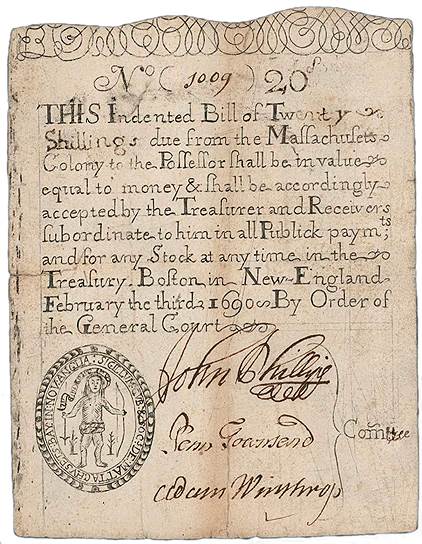 No ( 1009 ) 20s
THIS Indented Bill of Twenty
Shillings due from the Massachusets
Colony to the Possessor shall be in value
equal to money & shall be accordingly
accepted by the Treasurer and Receivers
subordinate to him in all Publick paymts;
and for any Stock at any time in the
Treasury. Boston in New-England
February the third 1690 By Order of
the General Court
John Phillips
Penn Townsend
Adam Winthrop
Comttee